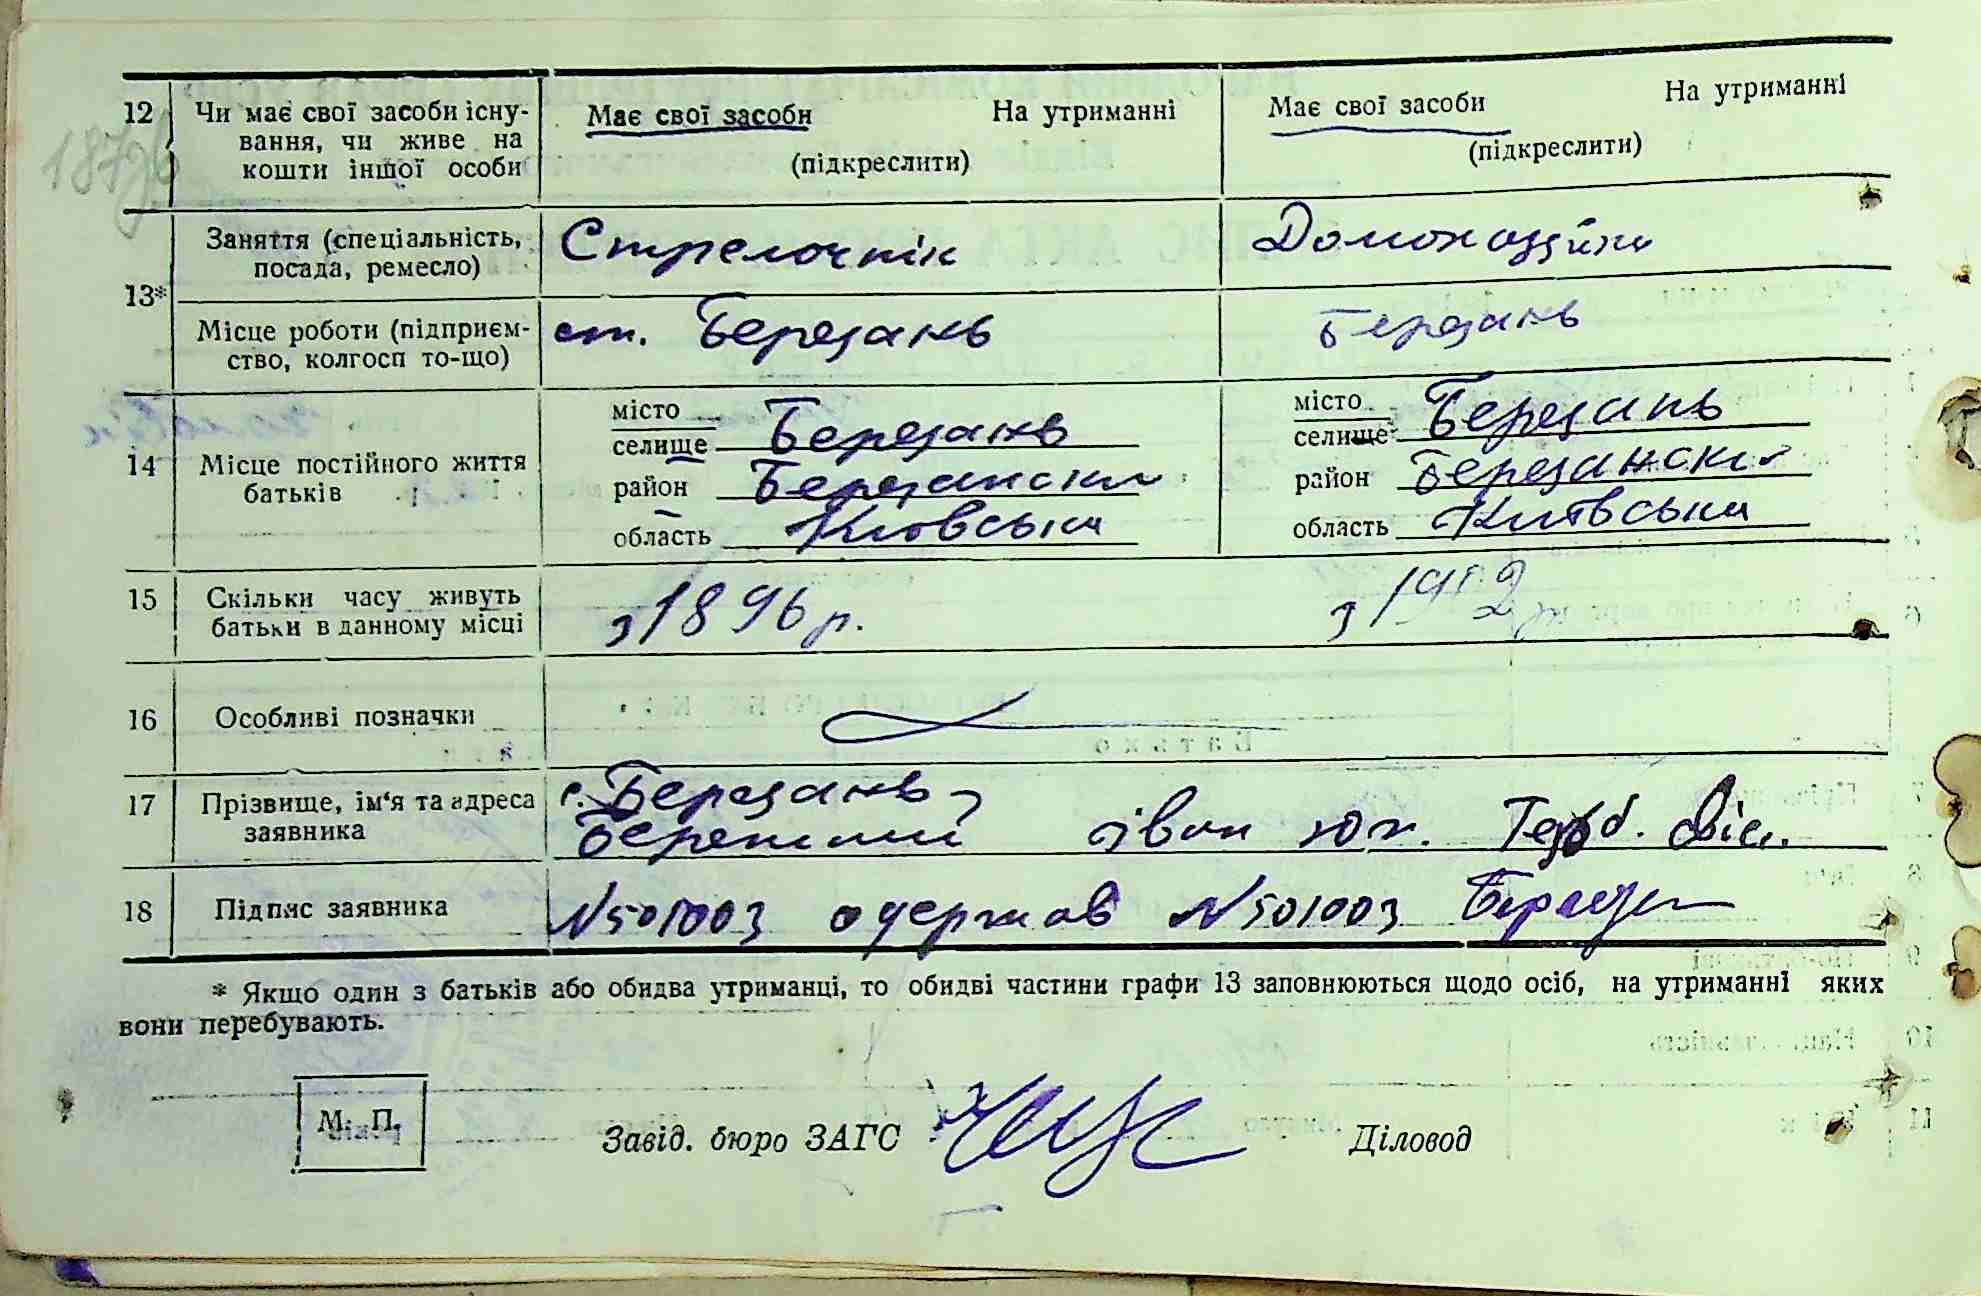 12 Чи має свої засоби існу-
вання, чи живе на
кошти іншої особи
Має свої засоби На утриманні
(підкреслити)
Має свої засоби На утриманні
(підкреслити)
13*
Заняття (спеціальність,
посада, ремесло)
Стрелочнік
Домохазяйка
Місце роботи (підприєм-
ство, колгосп то-що)
ст. Березань
Березань
14 Місце постійного життя
батьків
місто
селище Березань
район Березански
область Київська
місто
селище Березань
район Березански
область Київська
15 Скільки часу живуть
батьки в данному місці
з 1896 р.
з 1912 р.
16 Особливі позначки
17 Прізвище, ім'я та адреса
заявника
с. Березань
Іван
18 Підпис заявника
N501003 одержав N501003
* Якщо один з батьків або обидва утриманці, то обидві частини графи 13 заповнюються щодо осіб, на утриманні яких
вони перебувають.
М. П.
Завід. бюро ЗАГС
Діловод